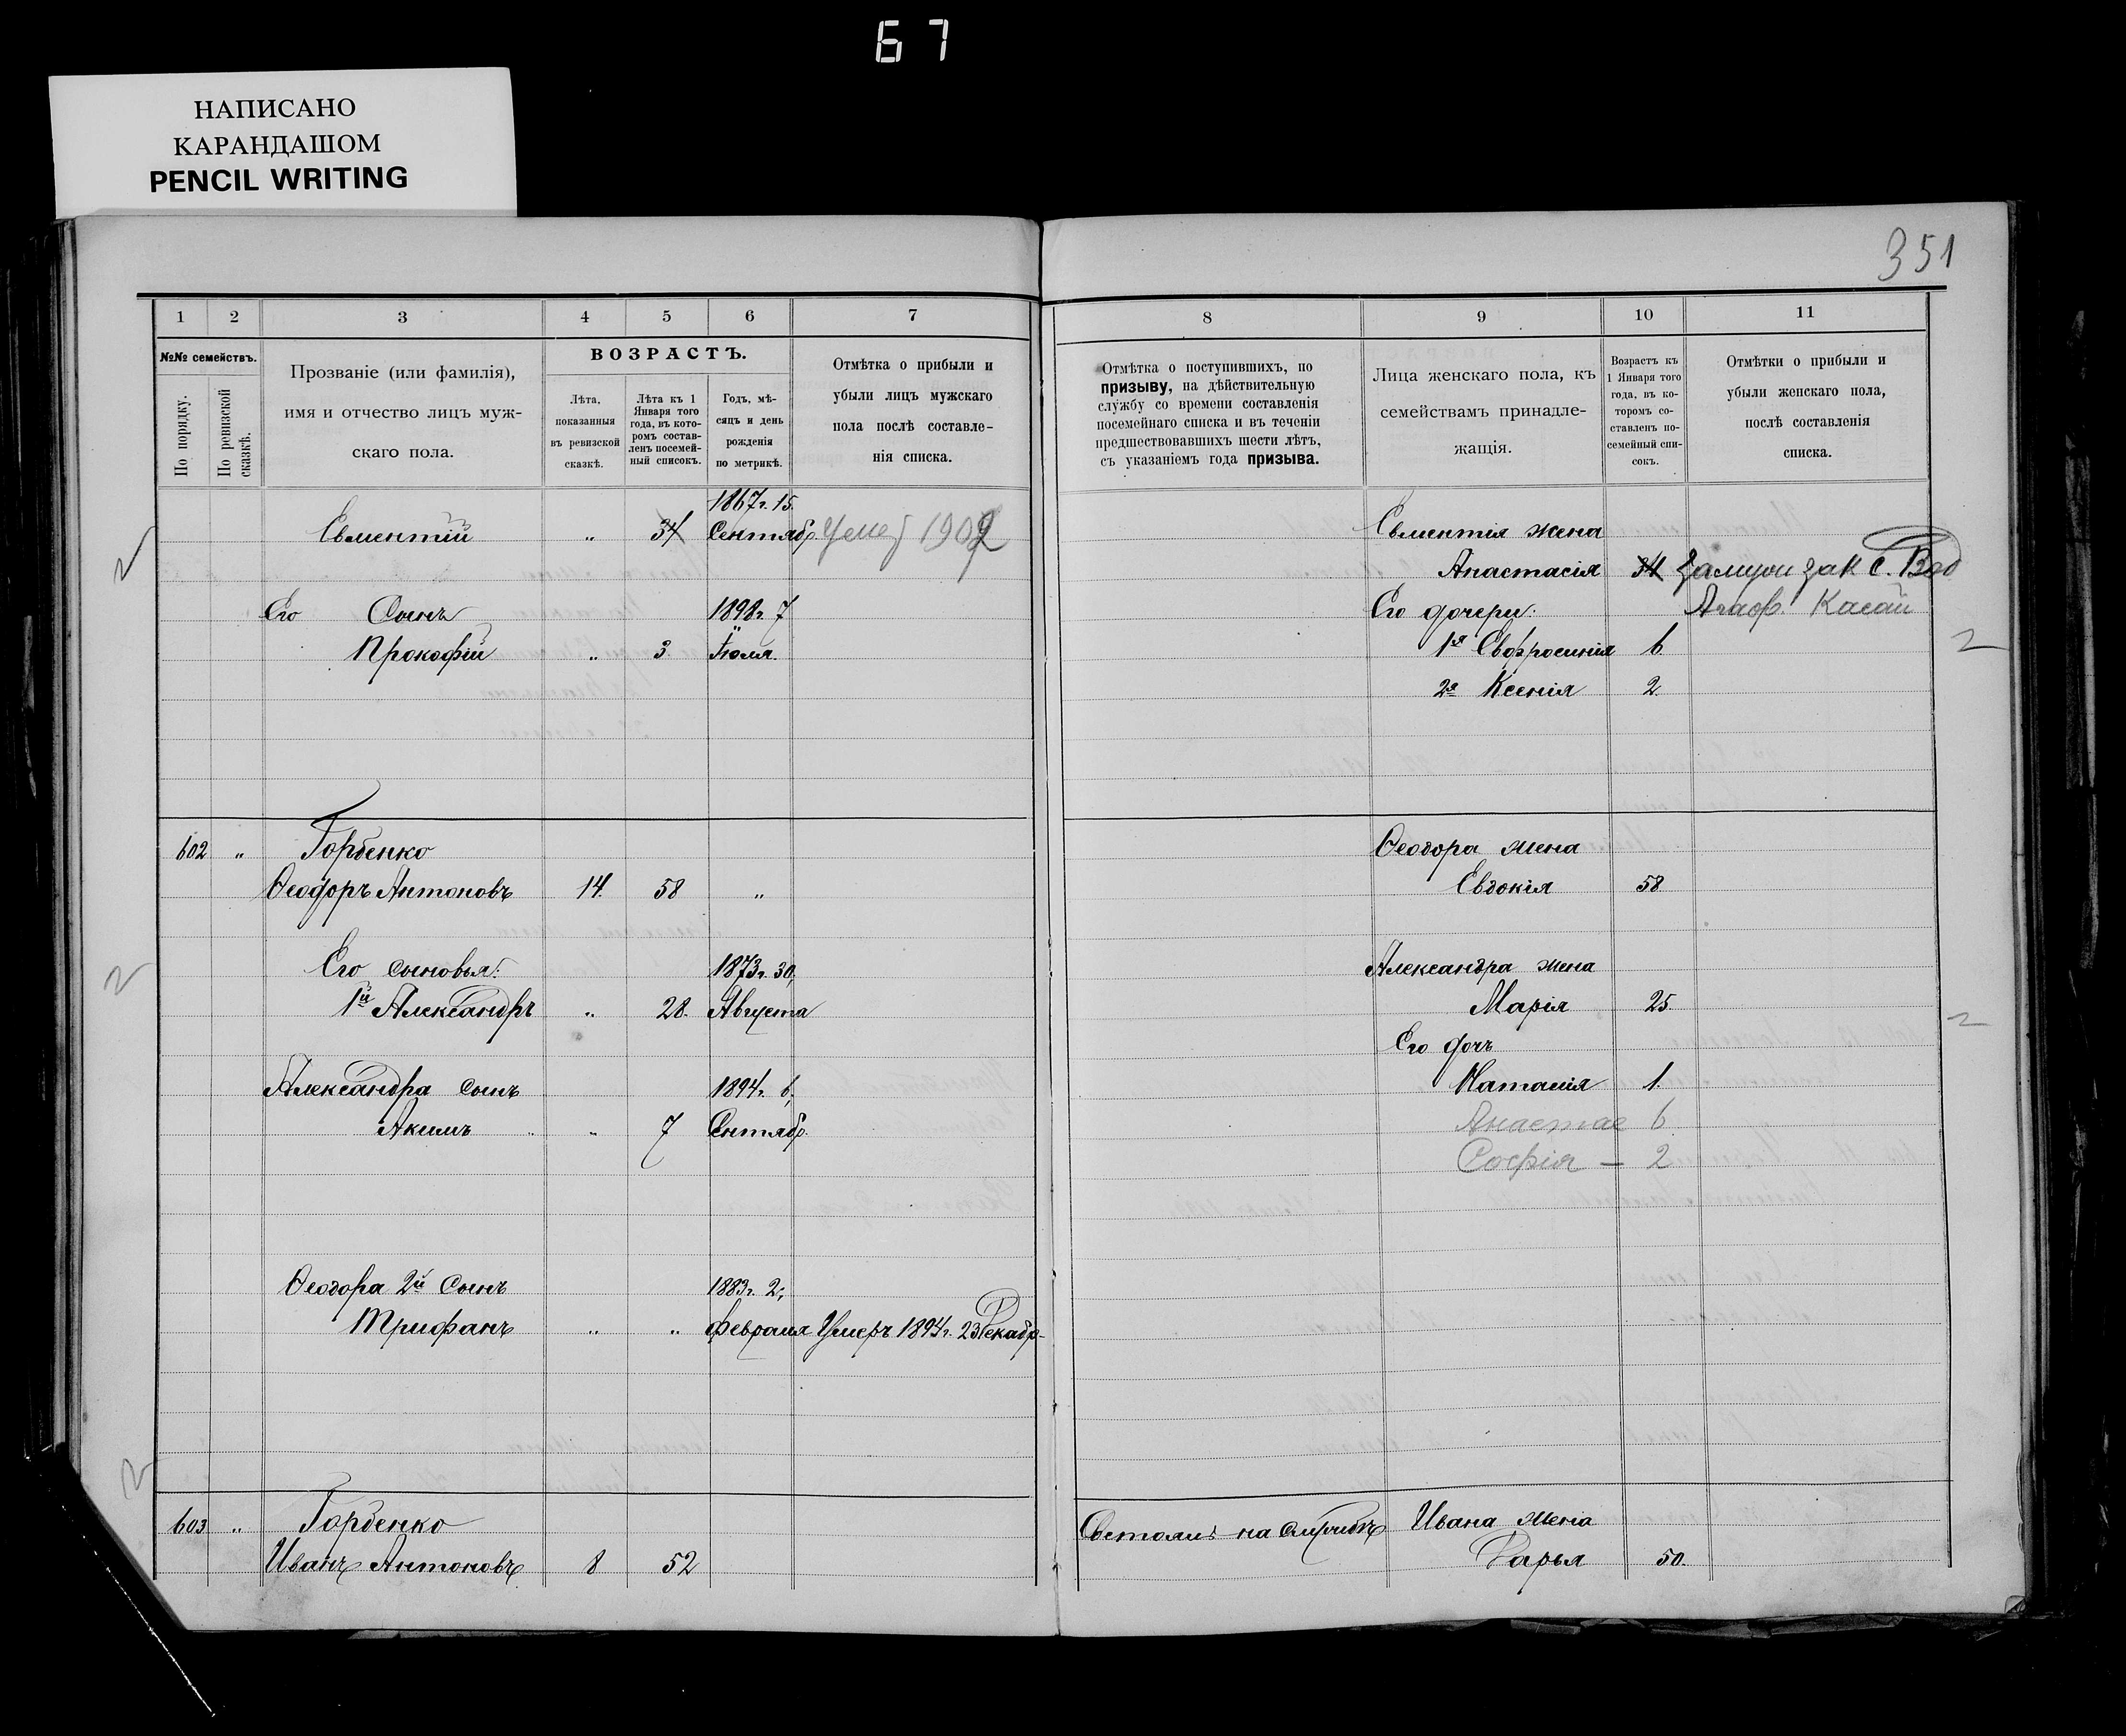 67
НАПИСАНО
КАРАНДАШОМ
PENCIL WRITING
351
1 2 3 4 5 6 7
№№ семействъ.
По порядку.
По ревизской сказкѣ.
Прозваніе (или фамилія),
имя и отчество лицъ муж-
скаго пола.
ВОЗРАСТЪ.
Лѣта,
показанныя
въ ревизской
сказкѣ.
Лѣта къ 1
Января того
года, въ кото-
ромъ состав-
ленъ посемей-
ный список.
Годъ, мѣ-
сяцъ и день
рожденія
по метрикѣ.
Отмѣтка о прибыли и
убыли лицъ мужскаго
пола послѣ составле-
нія списка.
1867 г. 15.
Евментій „ 34 Сентябр. 1902
Его Сынъ 1898 г. 7
Прокофій „ 3. Іюля.
602 „ Горбенко
Ѳеодоръ Антоновъ 14. 58 „
Его сыновья: 1873 г. 30,
1й Александръ „ 28. Августа
Александра сынъ 1894 г. 6,
Акимъ „ 7 Сентябр.
Ѳеодора 2й Сынъ 1883 г. 2,
Трифанъ „ „ Февраля Умеръ 1894 г. 23 Декабр-
603 „ Горбенко
Иванъ Антоновъ 8 52
8 9 10 11
Отмѣтка о поступившихъ, по
призыву, на дѣйствительную
службу со времени составленія
посемейнаго списка и въ теченіи
предшествовавшихъ шести лѣтъ,
съ указаніемъ года призыва.
Лица женскаго пола, къ
семействамъ принадле-
жащія.
Возрастъ къ
1 Января того
года, въ ко-
торомъ со-
ставленъ по-
семейный спи-
сокъ.
Отмѣтки о прибыли и
убыли женскаго пола,
послѣ составленія
списка.
Евментія жена
Анастасія 34 зак с.
Его дочери:
1я Евфросинія 6
2я Ксенія 2
Ѳеодора жена
Евдокія 58
Александра жена
Марія 25.
Его дочь
Наталія 1.
Анастас 6
Софія — 2
Состоялъ на службѣ Ивана жена
Дарья 50.